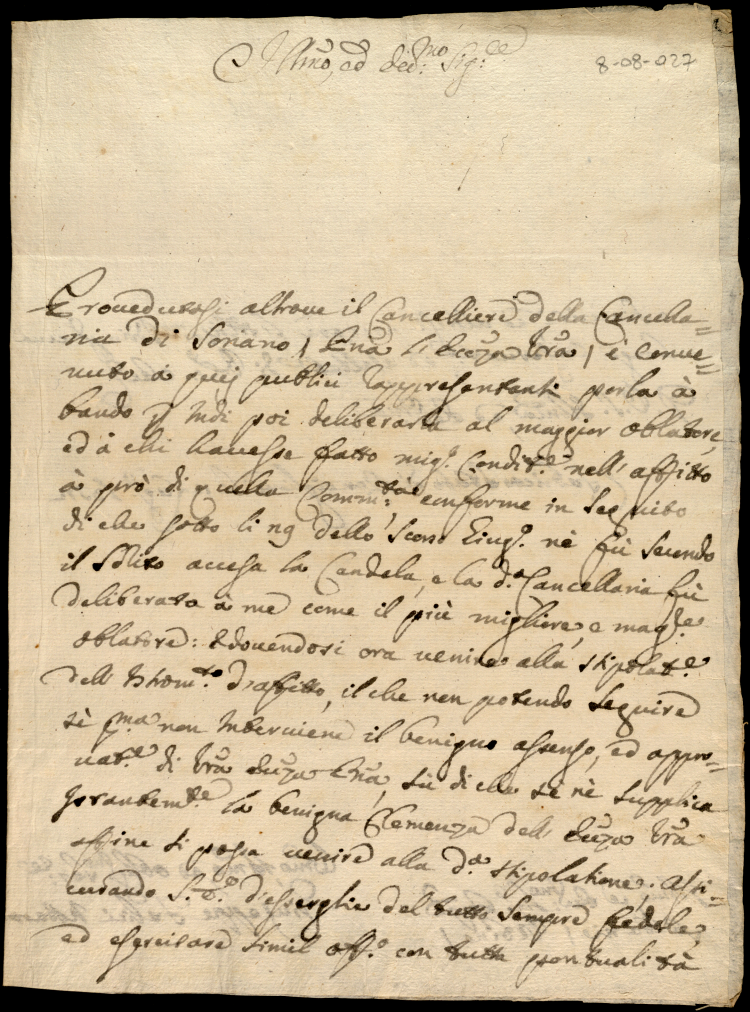 Ill.mo, ed Ecc.mo Sig.re
8-08-027
Provedutosi altrove il Cancelliere della Cancella=
ria di Soriano, è conve=
nuto a quei publici rappresentanti porla à
bando p indi poi deliberarla al maggior oblatore,
ed à chi havesse fatto mig.r condit.e nell'affitto
à però di quella Comm.tà conforme in seguito
di che sotto li 29 dello scorso Giug.o nè fù secondo
il solito accesa la Candela, e la d.a Cancellaria fù
deliberata à me come il più migliore, e magg.re
oblatore: e dovendosi ora venire alla stipolat.e
dell'Istrom.to d'affitto, il che non potendo seguire
sè p.ma non interviene il benigno assenso, ed appro=
vat.e di Vra Ecc.za, sù di che sè nè supplica
la benigna Clemenza dell' Ecc.za Vra
affine si possa venire alla d.a stipolatione; assi=
curando d'esserglie del tutto sempre fedele,
ed esercitare simil off.o con tutta pontualità